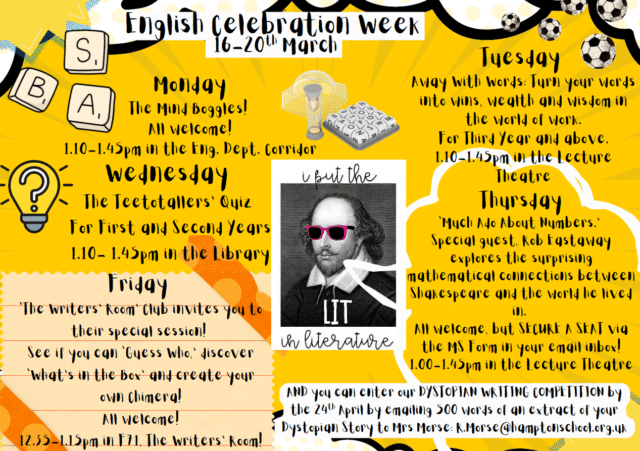 English Celebration Week
16-20th March
S
B
A
Monday
The Mind Boggles!
All welcome!
1.10-1.45pm in the Eng. Dept. Corridor
Tuesday
Away With Words: Turn your words
into wins, wealth and wisdom in
the world of work.
For Third Year and above.
1.10-1.45pm in the Lecture
Theatre
Wednesday
The Teetotallers' Quiz
For First and Second Years
1.10- 1.45pm in the Library
i put the
LIT
in literature
Thursday
'Much Ado About Numbers.'
Special guest, Rob Eastaway
explores the surprising
mathematical connections between
Shakespeare and the world he lived
in.
All welcome, but SECURE A SEAT via
the MS Form in your email inbox!
1.00-1.45pm in the Lecture Theatre
Friday
'The Writers' Room' Club invites you to
their special session!
See if you can 'Guess Who,' discover
'What's in the Box' and create your
own Chimera!
All welcome!
12.35-1.15pm in F71, The Writers' Room!
AND you can enter our DYSTOPIAN WRITING COMPETITION by
the 24th April by emailing 500 words of an extract of your
Dystopian Story to Mrs Morse: K.Morse@hamptonschool.org.uk